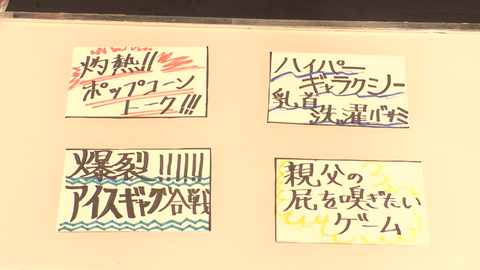 灼熱!!
ポップコーン
トーク!!!
ハイパー
ギャラクシー
乳首
洗濯バサミ
爆裂!!!!!!
アイスギャグ合戦
親父の
屁を嗅ぎたい
ゲーム